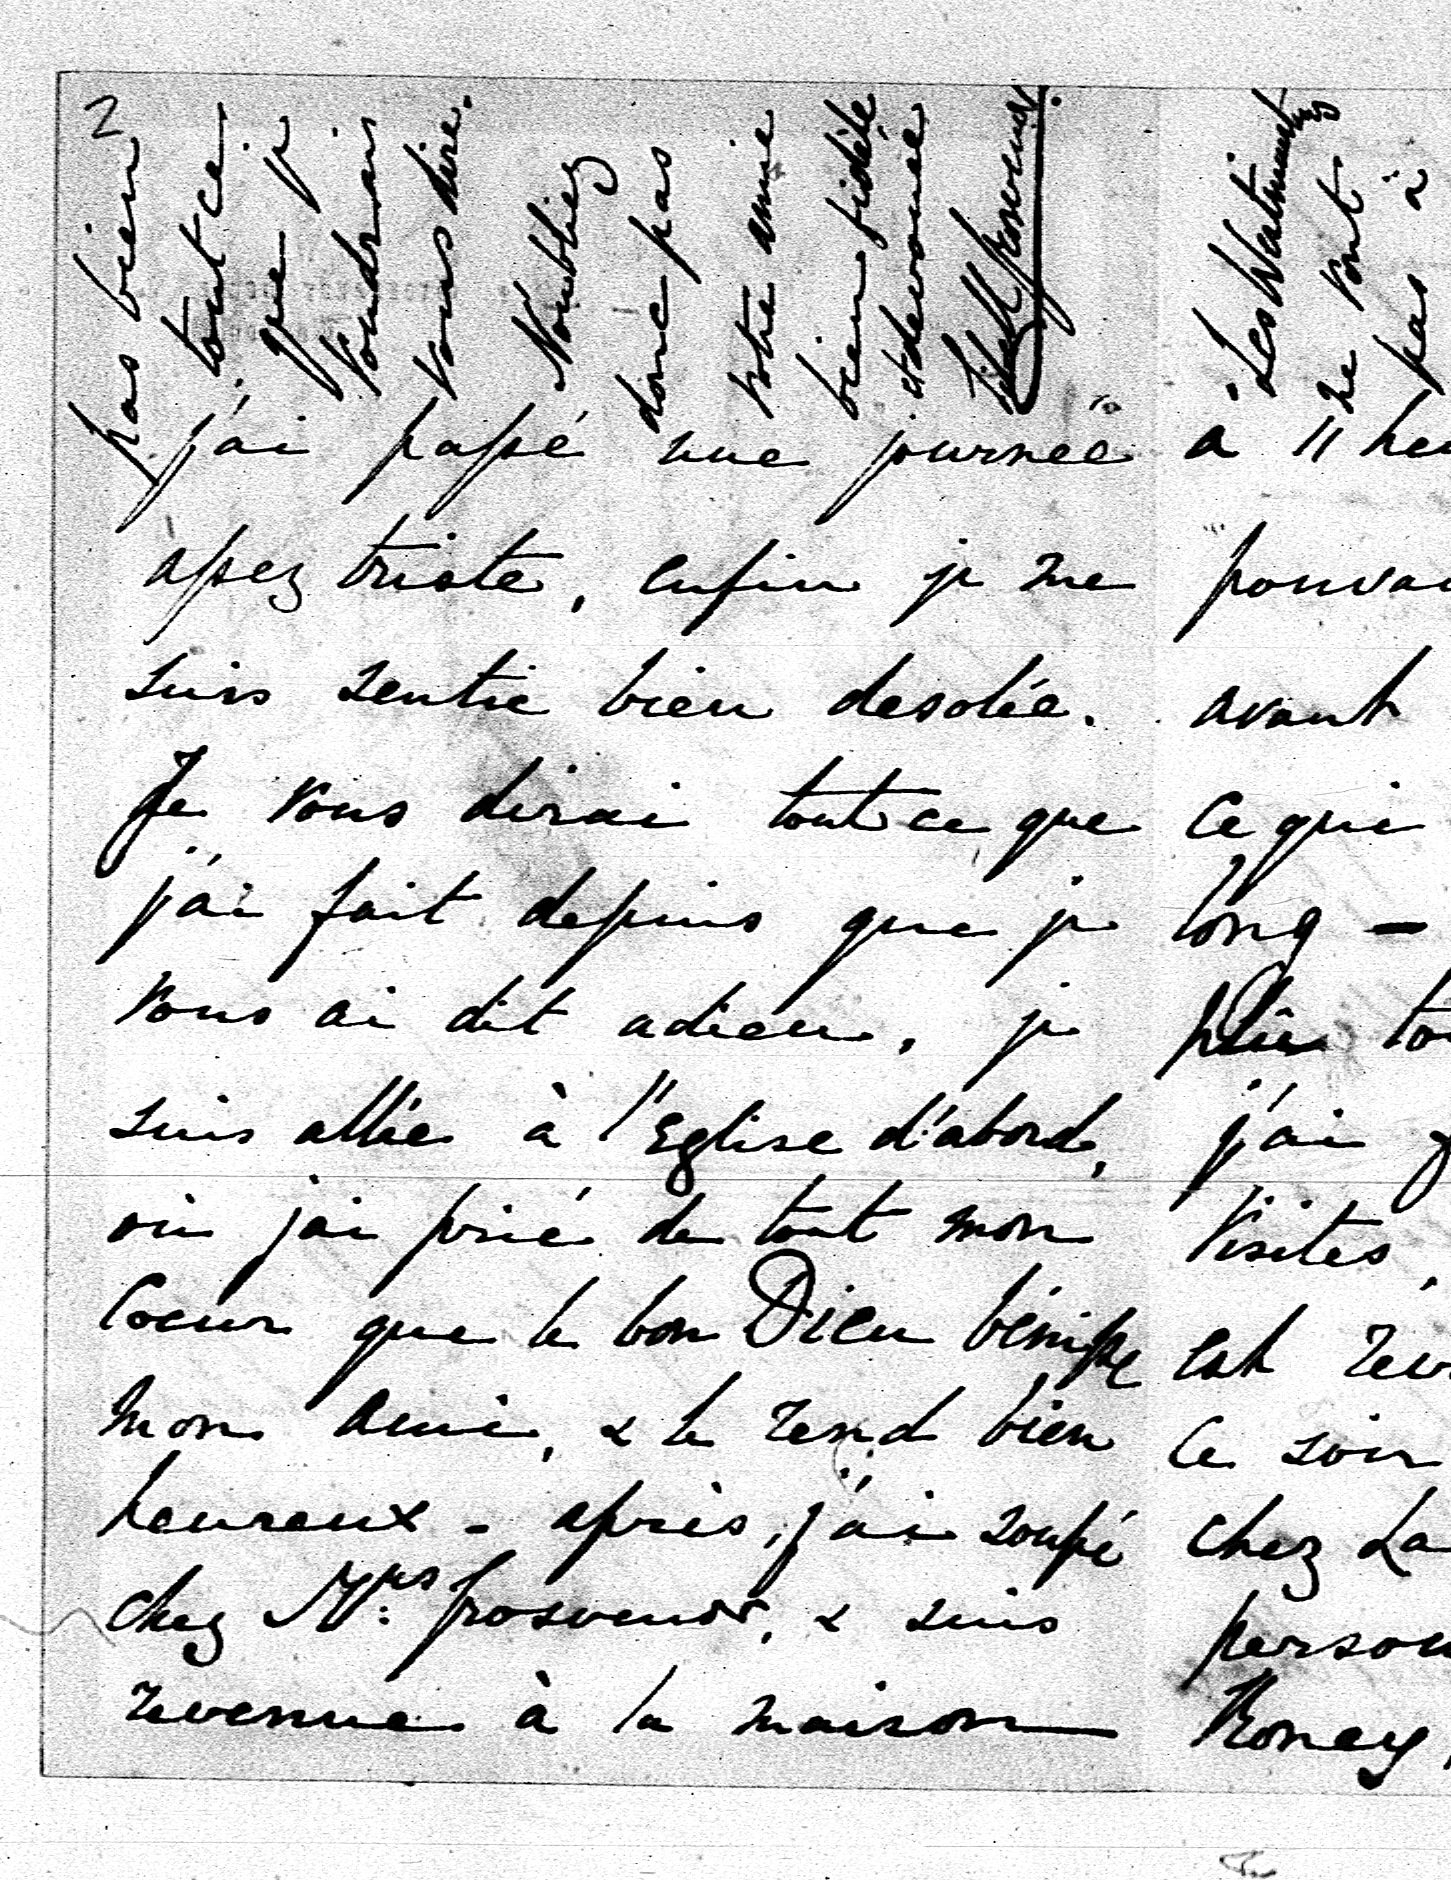 2
pas bien
tout ce
que je
voudrais
vous dire.
N'oubliez
donc pas
votre amie
bien fidèle
et devouée
j'ai passé une journée
assez triste, enfin je me
suis sentie bien desolée.
Je vous dirai tout ce que
j'ai fait depuis que je
vous ai dit adieu, je
suis allée à l'Eglise d'abord,
où j'ai prié de tout mon
Coeur que le bon Dieu bénisse
mon ami, & le rend bien
heureux - après, j'ai soupé
chez Mrs. Grosvenor, & suis
revenue à la maison
Les
ne vont
pas à
à 11 heu
pouvai
avant
ce qui
long -
to
j'ai
visites,
est rev
ce soir
chez La
person